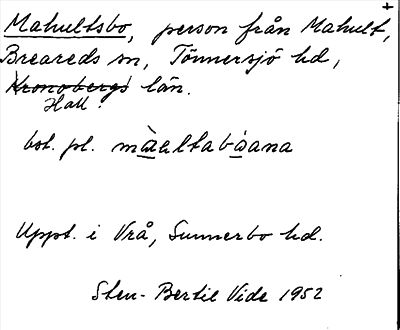 +
Mahultsbo, person från Mahult,
Breareds sn, Tönnersjö hd,
Kronobergs län.
Hall.
best. pl. màaltabòana
Uppt. i Vrå, Sunnerbo hd.
Sten-Bertil Vide 1952